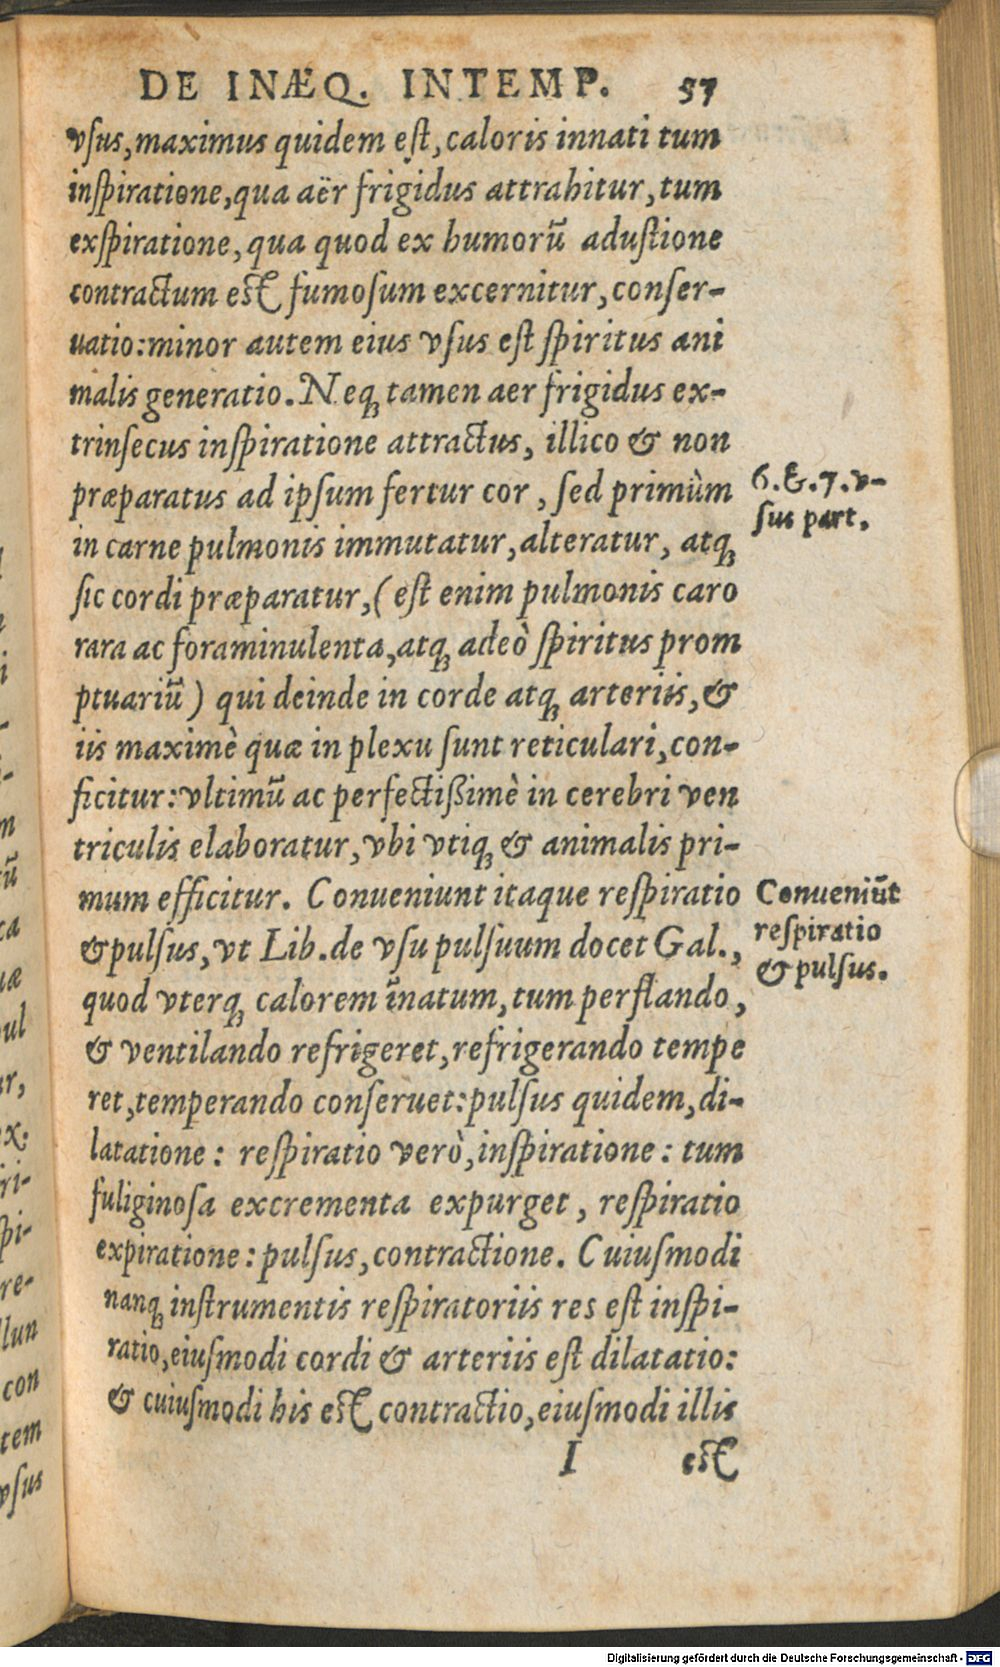 DE INÆQ. INTEMP. 57
vſus, maximus quidem eſt, caloris innati tum
inſpiratione, qua aër frigidus attrahitur, tum
exſpiratione, qua quod ex humorũ aduſtione
contractum eſt fumoſum excernitur, conſer-
uatio: minor autem eius vſus eſt ſpiritus ani
malis generatio. Neqꝫ tamen aer frigidus ex-
trinſecus inſpiratione attractus, illico & non
præparatus ad ipſum fertur cor, ſed primùm
in carne pulmonis immutatur, alteratur, atqꝫ
ſic cordi præparatur, (eſt enim pulmonis caro
rara ac foraminulenta, atqꝫ adeò ſpiritus prom
ptuariũ) qui deinde in corde atqꝫ arteriis, &
iis maximè quæ in plexu ſunt reticulari, con-
ficitur: vltimũ ac perfectiſſimè in cerebri ven
triculis elaboratur, vbi vtiqꝫ & animalis pri-
mum efficitur. Conueniunt itaque reſpiratio
& pulſus, vt Lib. de vſu pulſuum docet Gal.,
quod vterqꝫ calorem ĩnatum, tum perflando,
& ventilando refrigeret, refrigerando tempe
ret, temperando conſeruet: pulſus quidem, di-
latatione: reſpiratio verò, inſpiratione: tum
fuliginoſa excrementa expurget, reſpiratio
expiratione: pulſus, contractione. Cuiuſmodi
nanqꝫ inſtrumentis reſpiratoriis res eſt inſpi-
ratio, eiuſmodi cordi & arteriis eſt dilatatio:
& cuiuſmodi his eſt contractio, eiuſmodi illis
I eſt
6. &. 7. v-
ſus part.
Conueniũt
reſpiratio
& pulſus.
Digitalisierung gefördert durch die Deutsche Forschungsgemeinschaft - DFG